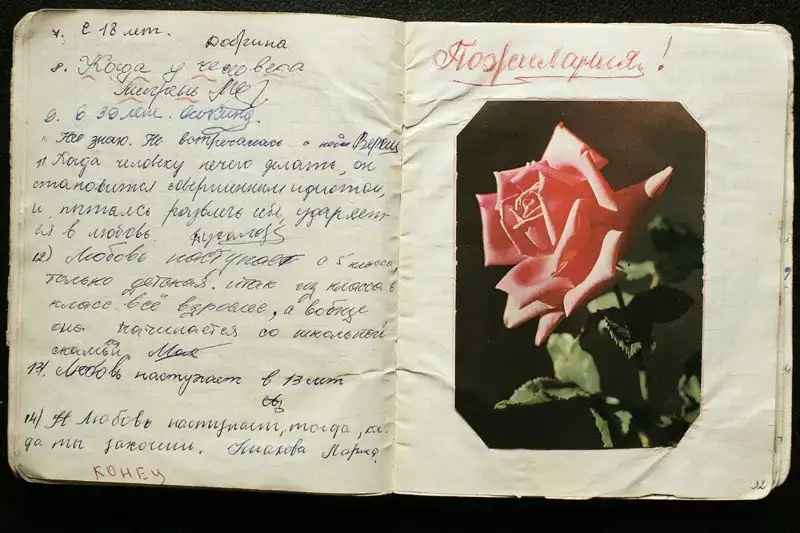 7. С 18 лет.
Добрина
8. Когда у человека
мигрень
9. В 39 лет.
Не знаю. Не встречалась с ней
11 Когда человеку нечего делать, он
становится совершенным идиотом,
и, пытаясь развлечь себя, ударяет-
ся в любовь.
12) Любовь наступает с 5 класса,
только детская. и так из класса в
класс всё взрослее, а вобще
она начинается со школьной
скамьи.
13). Любовь наступает в 13 лет
14) Любовь наступает, тогда, ко-
да ты захочеш. Марина
КОНЕЦ
Пожилания!
32